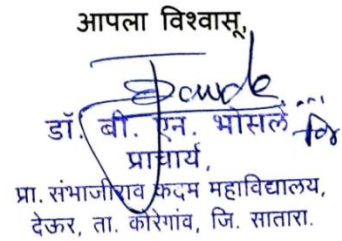 आपला विश्वासू,
डॉ. बी. एन. भोसले
प्राचार्य,
प्रा. संभाजीराव कदम महाविद्यालय,
देऊर, ता. कोरेगांव, जि. सातारा.